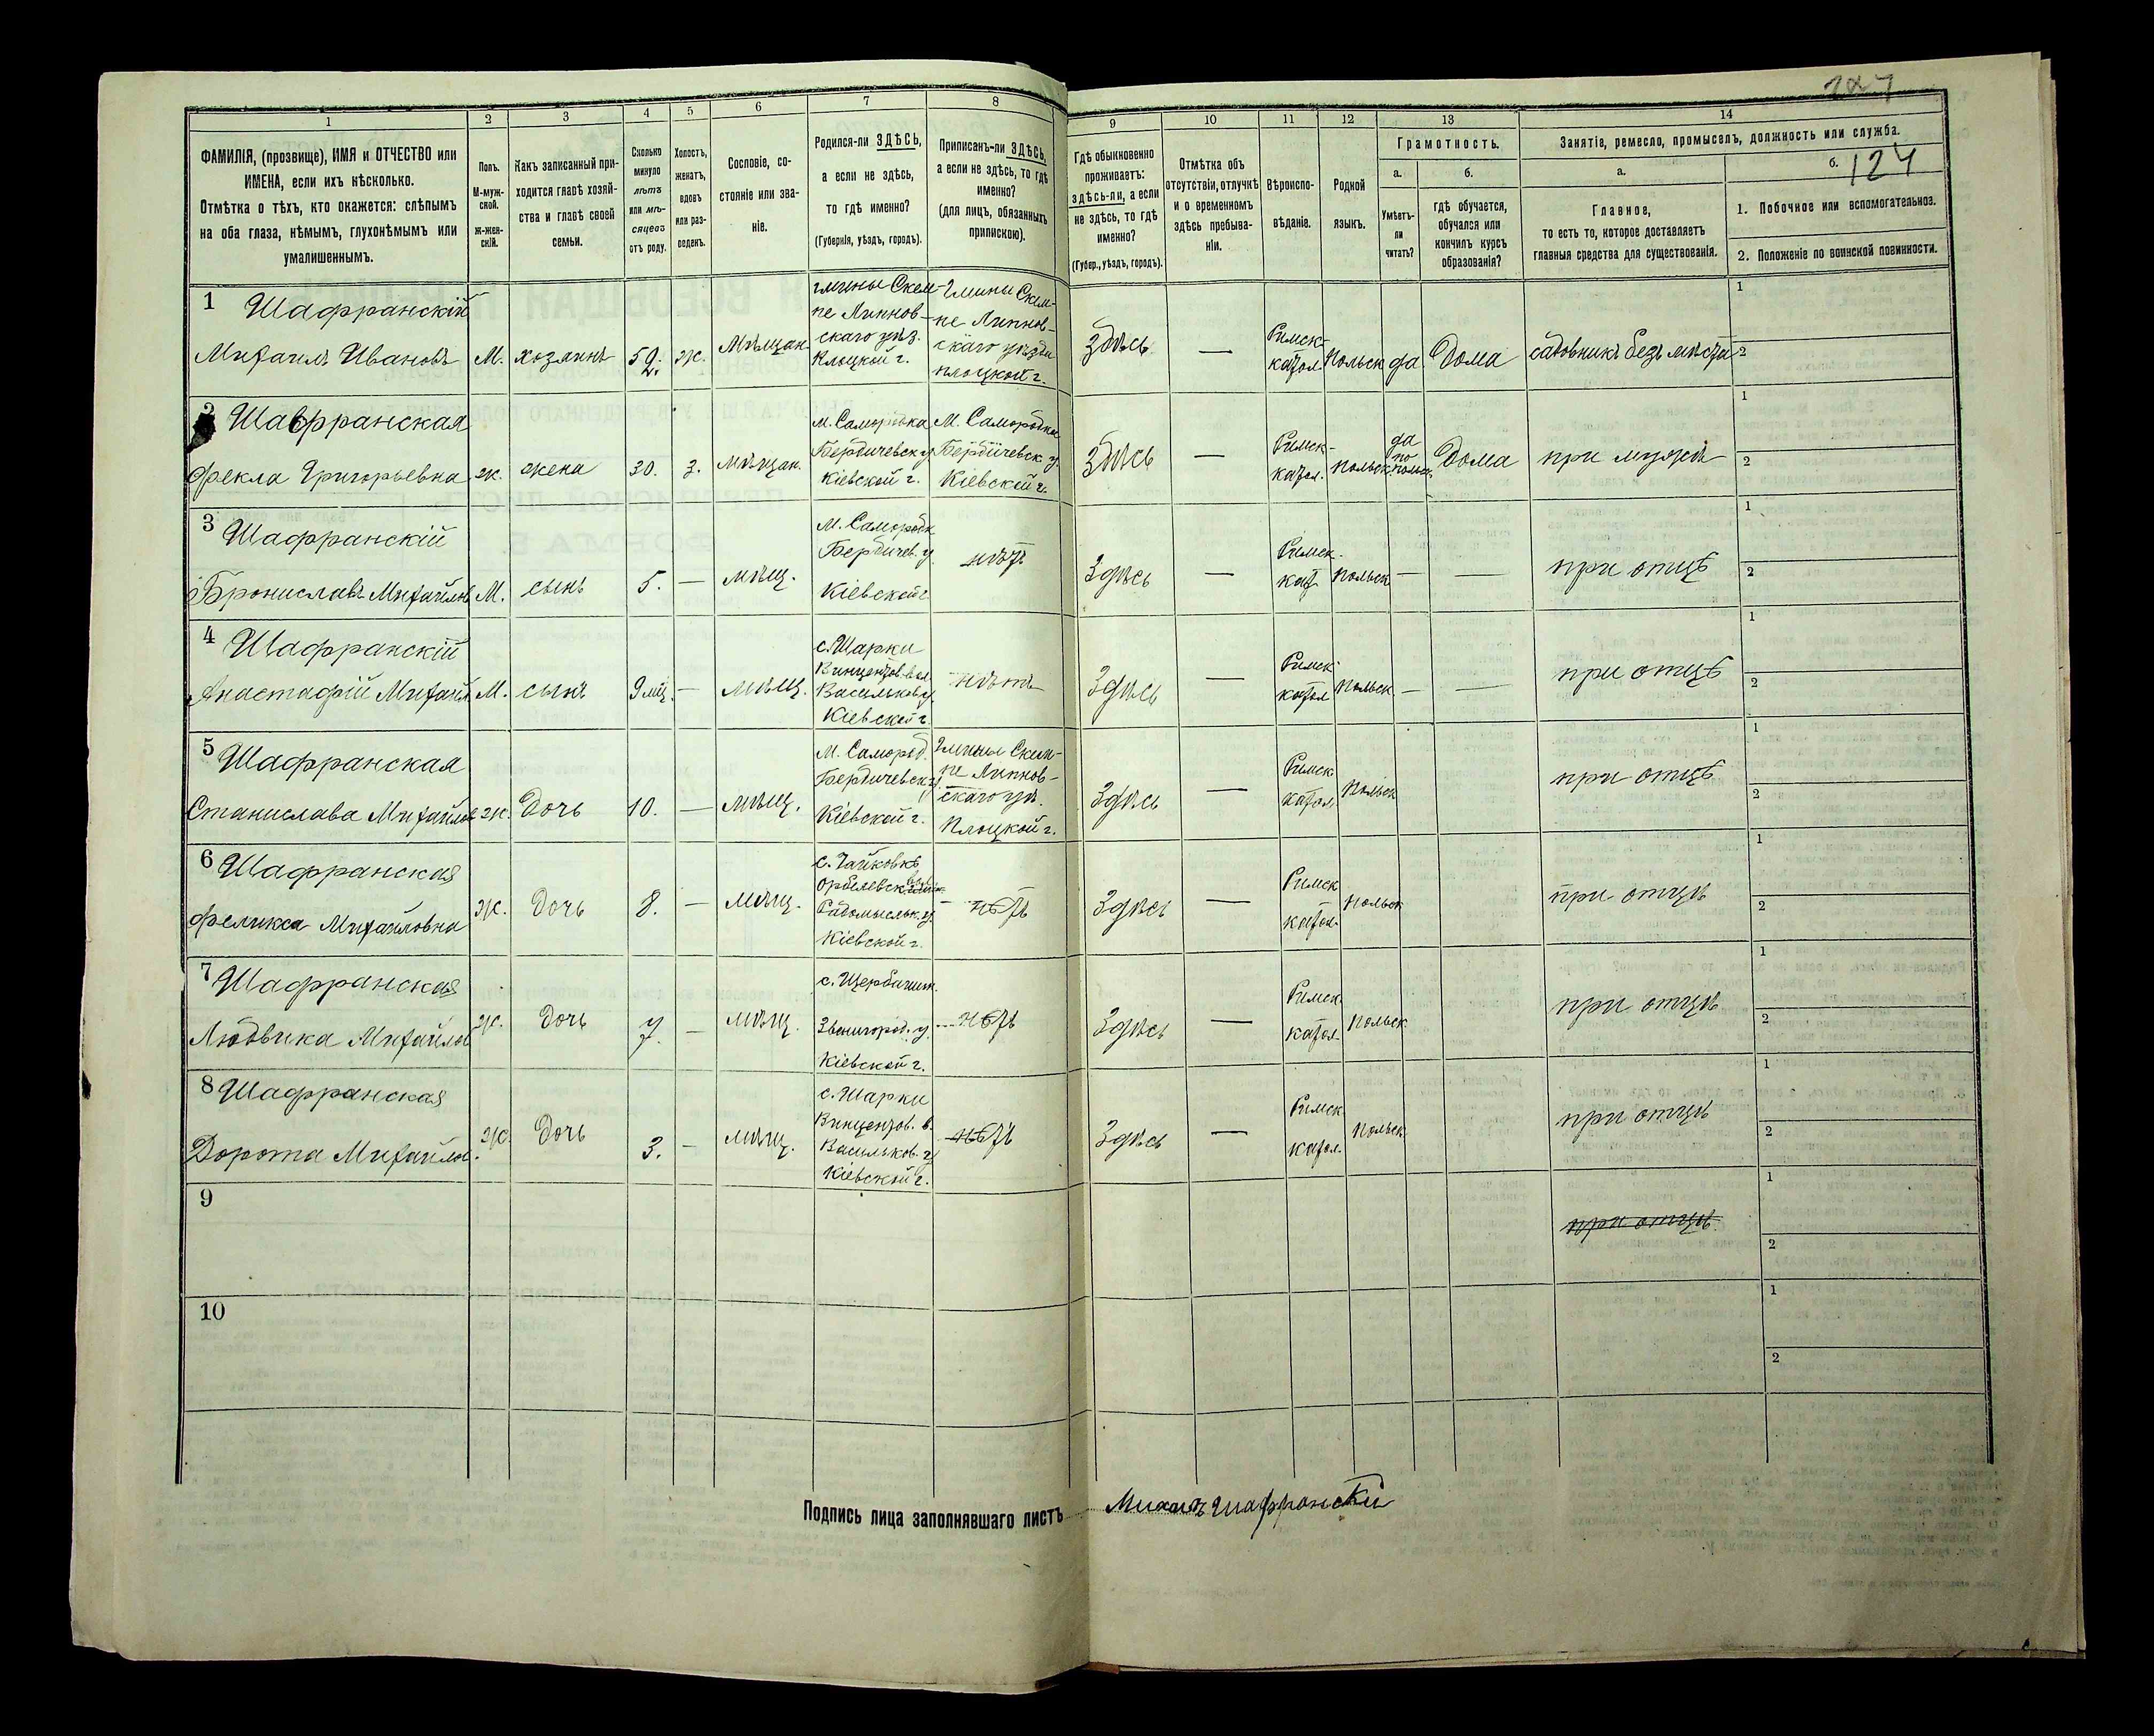 124
1
2
3
4
5
6
7
8
9
10
11
12
13
14
ФАМИЛІЯ, (прозвище), ИМЯ и ОТЧЕСТВО или
ИМЕНА, если ихъ нѣсколько.
Отмѣтка о тѣхъ, кто окажется: слѣпымъ
на оба глаза, нѣмымъ, глухонѣмымъ или
умалишеннымъ.
Полъ.
М-муж-
ской.
ж-жен-
скій.
Какъ записанный при-
ходится главѣ хозяй-
ства и главѣ своей
семьи.
Сколько
минуло
лѣтъ
или мѣ-
сяцевъ
отъ роду.
Холостъ,
женатъ,
вдовъ
или раз-
веденъ.
Сословіе, со-
стояніе или зва-
ніе.
Родился-ли ЗДѢСЬ,
а если не здѣсь,
то гдѣ именно?
(Губернія, уѣздъ, городъ).
Приписанъ-ли ЗДѢСЬ,
а если не здѣсь, то гдѣ
именно?
(для лицъ, обязанныхъ
припискою).
Гдѣ обыкновенно
проживаетъ:
здѣсь-ли, а если
не здѣсь, то гдѣ
именно?
(Губер., уѣздъ, городъ).
Отмѣтка объ
отсутствіи, отлучкѣ
и о временномъ
здѣсь пребыва-
ніи.
Вѣроиспо-
вѣданіе.
Родной
языкъ.
Грамотность.
а.
Умѣетъ-
ли
читать?
б.
гдѣ обучается,
обучался или
кончилъ курсъ
образованія?
Занятіе, ремесло, промыселъ, должность или служба.
а.
Главное,
то есть то, которое доставляетъ
главныя средства для существованія.
б.
1. Побочное или вспомогательное.
2. Положеніе по воинской повинности.
1 Шафранскій
Михаилъ Ивановъ
М.
хозяинъ
59.
ж.
Мѣщан.
гмины Скем-
пе Липнов-
скаго уѣз.
Плоцкой г.
Гмины Скем-
пе Липнов-
скаго уѣзда
плоцкой г.
Здѣсь
—
Римск-
катол.
Польск
да
Дома
садовникъ безъ мѣста
1
2
2 Шафранская
Фекла Григорьевна
ж.
жена
30.
з.
мѣщан.
м. Самородка
Бердичевск у.
Кіевской г.
М. Самородка
Бердичевск у.
Кіевской г.
Здѣсь
—
Римск-
катол.
польск.
да
по
польск.
Дома
при мужѣ
1
2
3 Шафранскій
Брониславъ Михайлов
М.
сынъ
5.
—
мѣщ.
М. Самородк
Бердичев. у.
Кіевской г
нѣтъ
Здѣсь
—
Римск.
кат
польск
—
—
при отцѣ
1
2
4 Шафранскій
Анастафій Михайл.
М.
сынъ
9 мѣц.
—
мѣщ.
с. Шарки
Винцентов. вол.
Васильков у.
Кіевской г.
нѣтъ
Здѣсь
—
Римск.
катол
польск
—
—
при отцѣ
1
2
5 Шафранская
Станислава Михайлов
ж.
Дочь
10.
—
мѣщ.
М. Самород.
Бердичевск у.
Кіевской г.
Гмины Скем-
пе Липнов-
скаго уѣ.
Плоцкой г.
Здѣсь
—
Римск
катол.
Польск
при отцѣ
1
2
6 Шафранская
Феликса Михайловна
ж.
Дочь
8.
—
мѣщ.
с. Чайковкѣ
Радомысльк. у.
Кіевской г.
нѣтъ
Здѣсь
—
Римск
катол.
польск
при отцѣ
1
2
7 Шафранская
Людвика Михайлов
ж.
Дочь
7.
—
мѣщ.
Звенигород. у.
Кіевской г.
нѣтъ
Здѣсь
—
Римск.
катол.
польск.
при отцѣ
1
2
8 Шафранская
Дорота Михайлов.
ж.
Дочь
3.
—
мѣщ.
с. Шарки
Винцентов. в.
Васильков. у
Кіевской г.
нѣтъ
Здѣсь
—
Римск
катол.
польск.
при отцѣ
1
2
9
при отцѣ
1
2
10
1
2
Подпись лица заполнявшаго листъ
Шафранскій